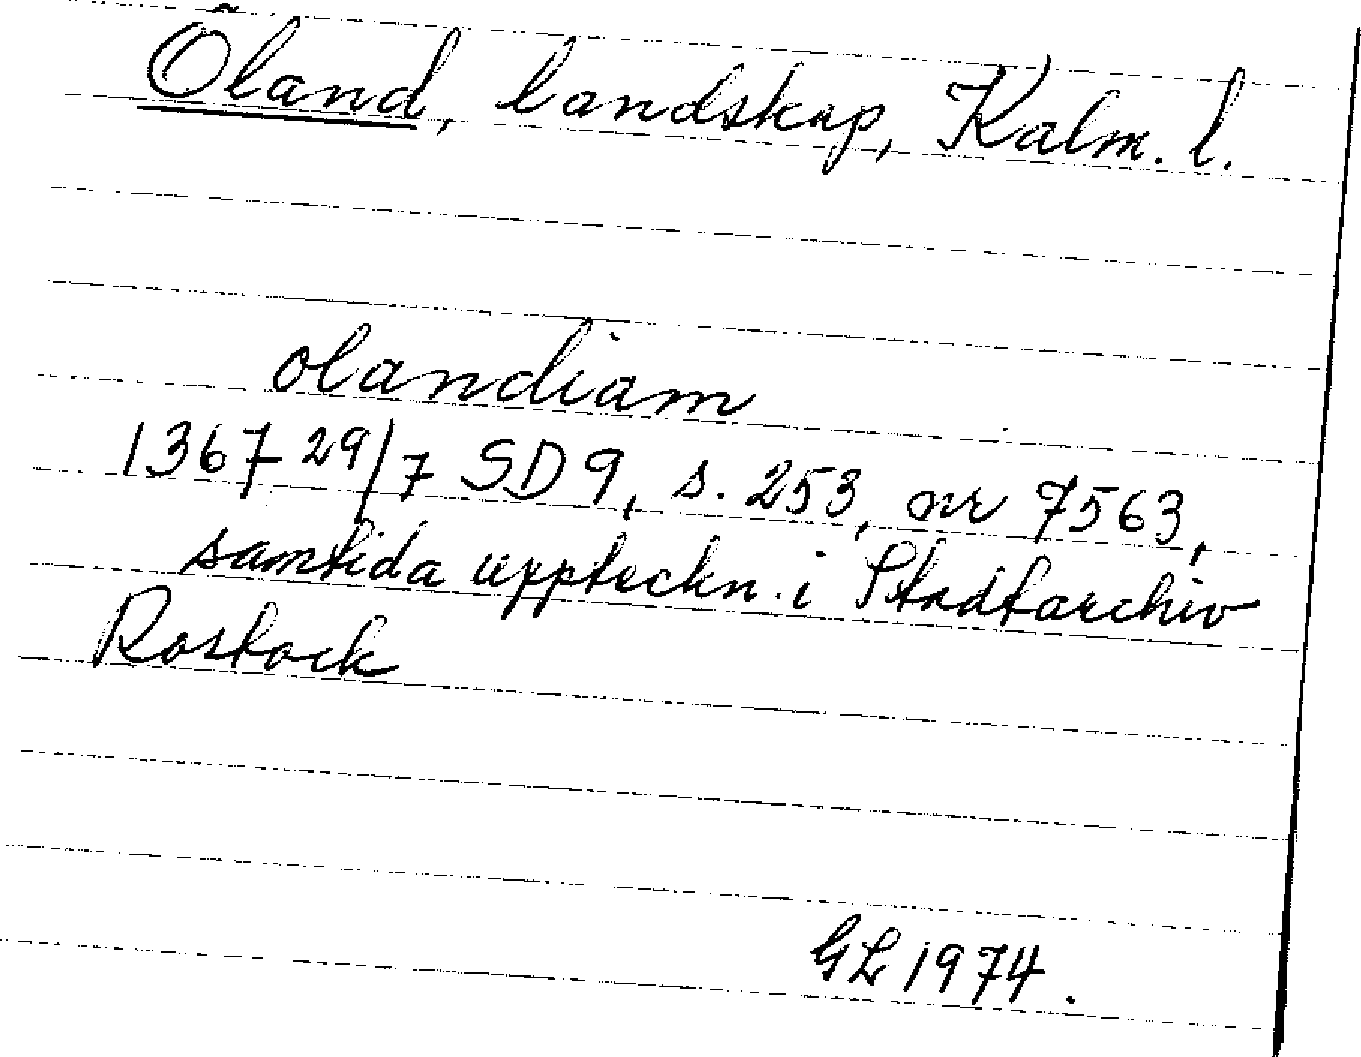 Öland, landskap, Kalm. l.
olandiam
1367 29/7 SD 9, s. 253, nr 7563,
samtida uppteckn. i Stadtarchiv
Rostock
GL 1974.